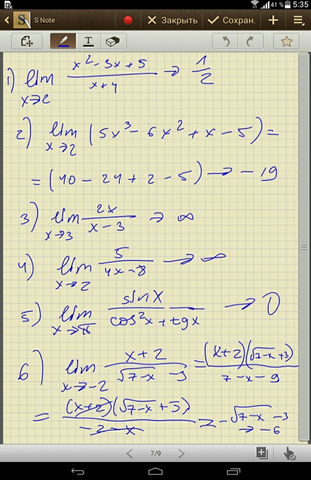 S Note
41 %
5:35
Закрыть
Сохран.
1) lim x→2 (x² - 3x + 5)/(x+4) → 1/2
2) lim x→2 (5x³ - 6x² + x - 5) =
= (40 - 24 + 2 - 5) → - 19
3) lim x→3 2x/(x - 3) → ∞
4) lim x→2 5/(4x - 8) → ∞
5) lim sinx/(cos²x + tgx) → 0
6) lim x→-2 (x + 2)/(√(7-x) - 3) = (x+2)(√(7-x) + 3)/(7 - x - 9)
= (x+2)(√(7-x) + 3)/(-2-x) = - √(7-x) - 3
→ - 6
7/9